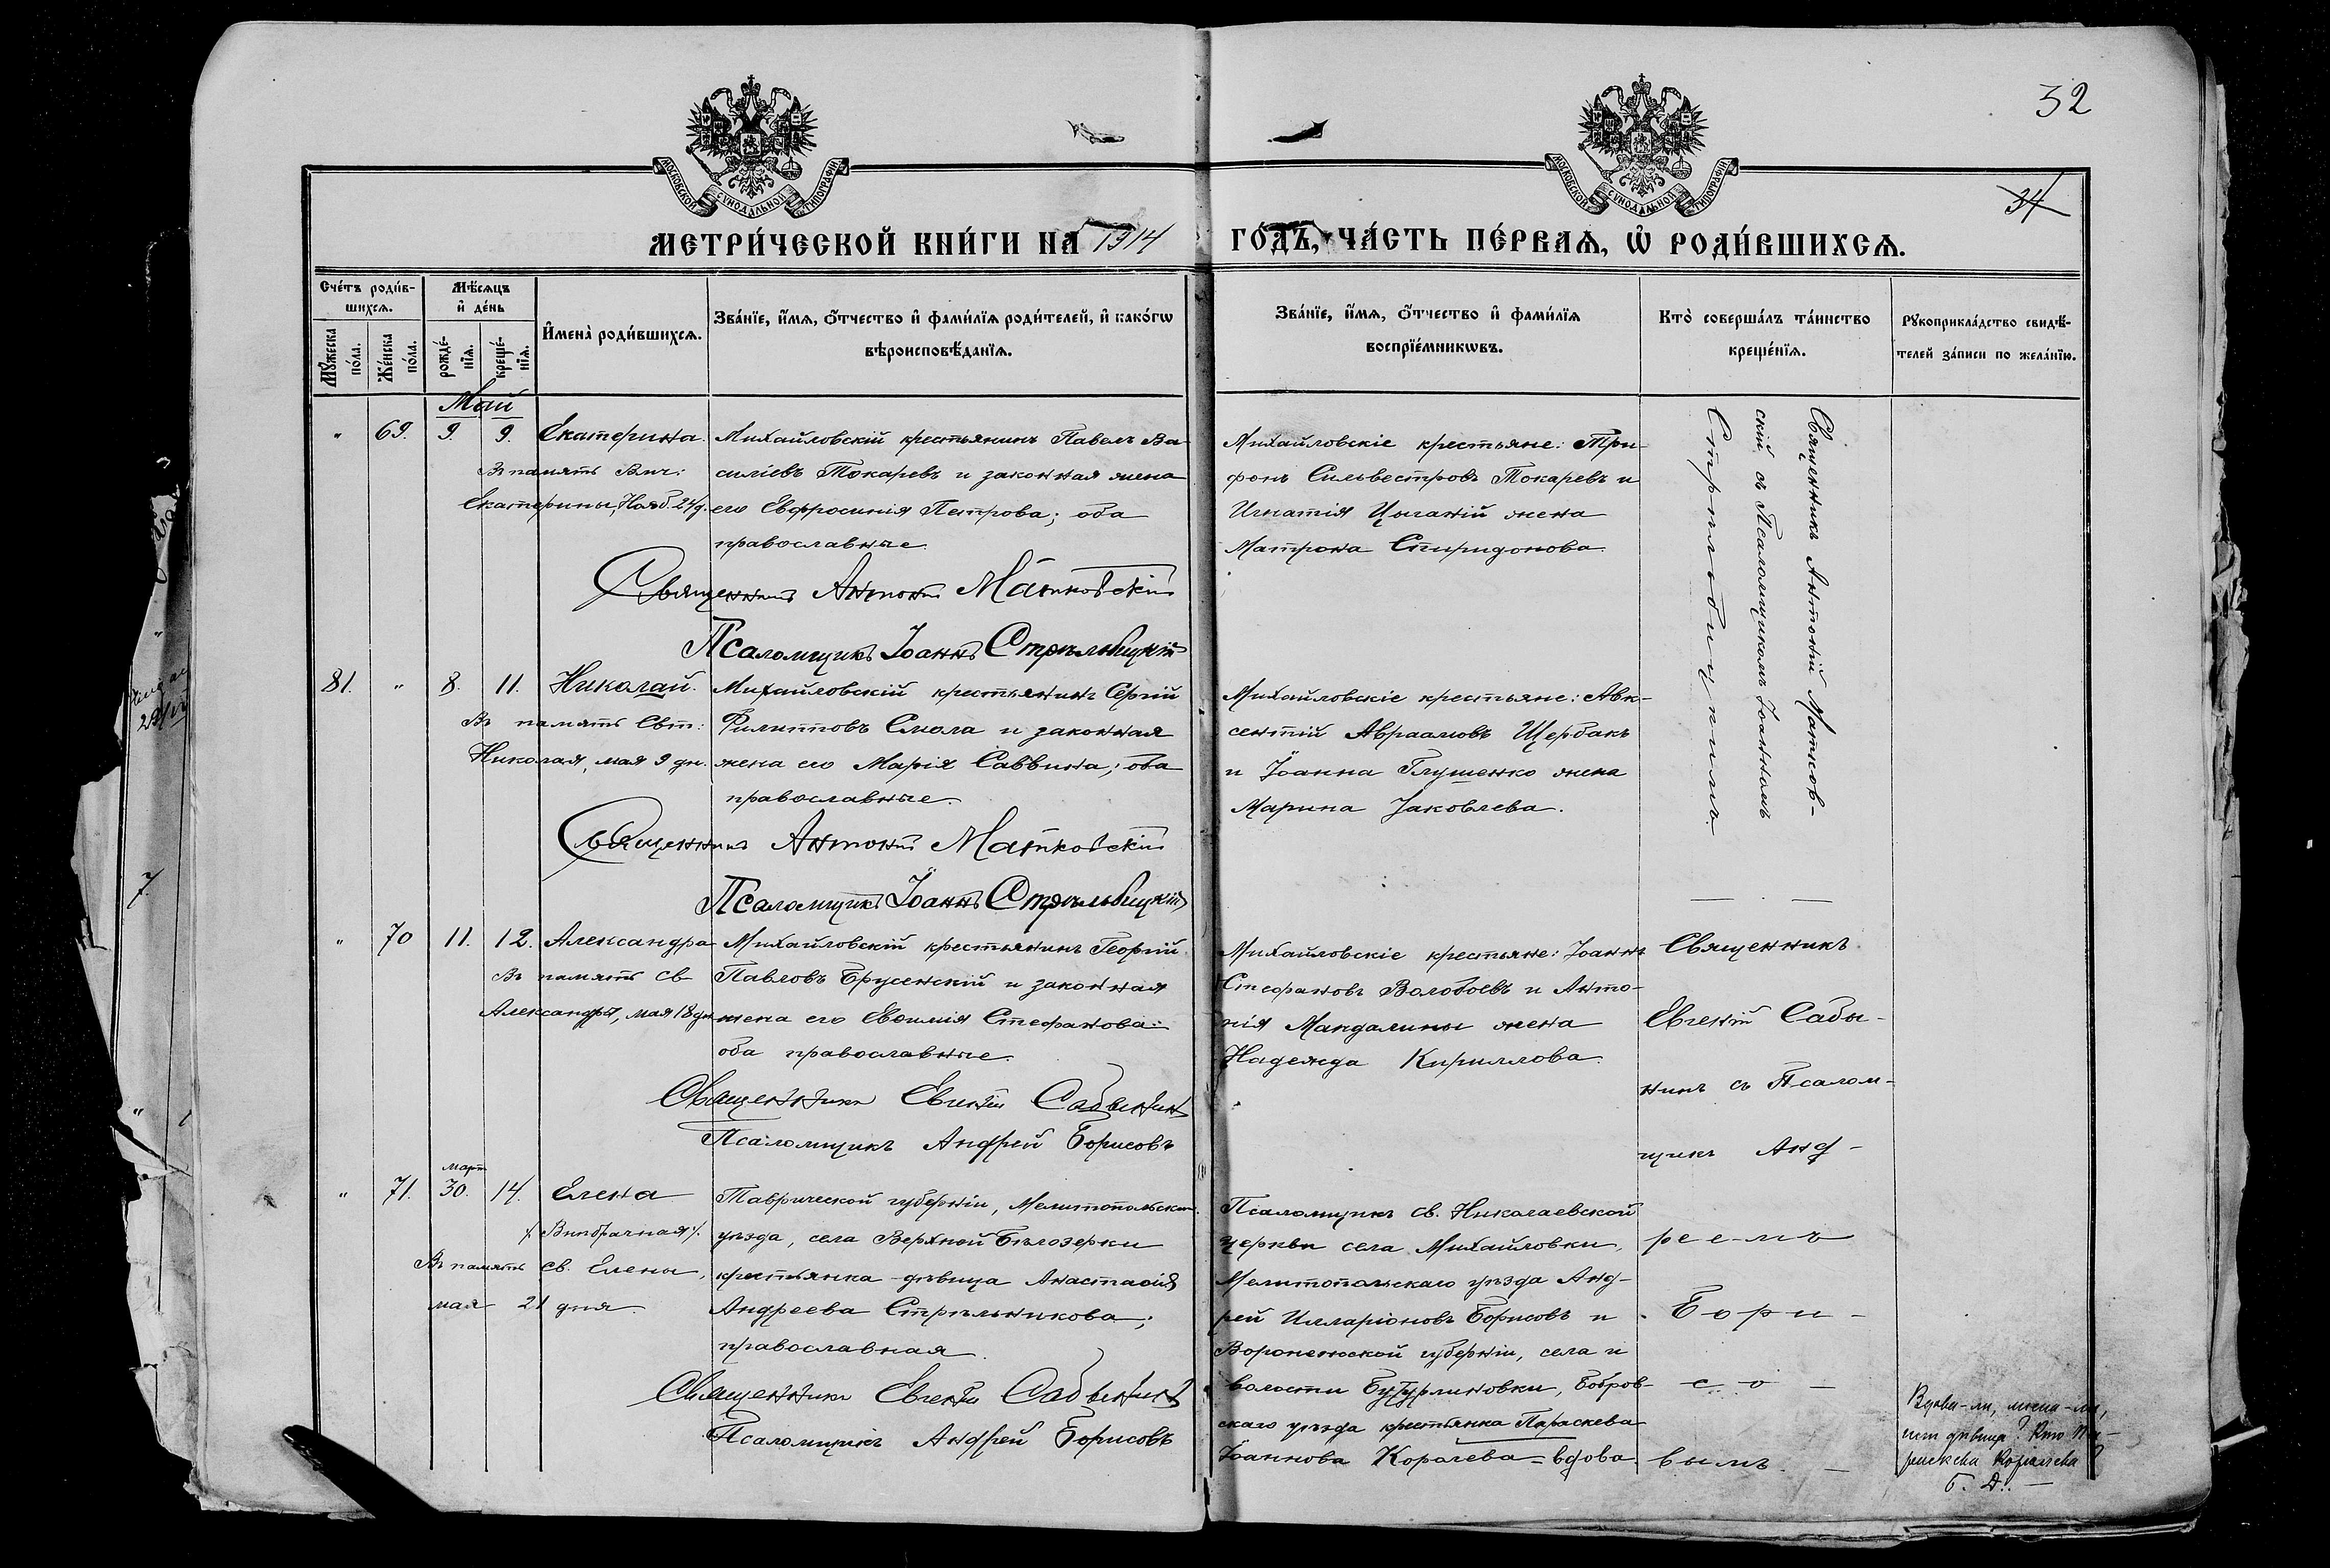 32
34
МОСКОВСКОЙ СѴНОДАЛЬНОЙ ТИПОГРАФІИ
МОСКОВСКОЙ СѴНОДАЛЬНОЙ ТИПОГРАФІИ
МЕТРИ́ЧЕСКОЙ КНИ́ГИ НА 1914 ГО́ДЪ, ЧА́СТЬ ПЕ́РВАѦ, Ѡ҆ РОДИ́ВШИХСѦ.
Сче́тъ роди́в-
шихсѧ.
Мꙋ́жеска по́ла.
Же́нска по́ла.
Мѣ́сѧцъ
и҆ де́нь
рожде́-
нїѧ.
креще́-
нїѧ.
И҆мена̀ роди́вшихсѧ.
Зва́нїе, и҆́мѧ, ѻ҆́тчество и҆ фами́лїѧ роди́телей, и҆ како́гѡ
вѣроисповѣ́данїѧ.
Зва́нїе, и҆́мѧ, ѻ҆́тчество и҆ фами́лїѧ
воспрїе́мникѡвъ.
Кто̀ соверша́лъ та́инство
креще́нїѧ.
Рꙋкоприкла́дство свидѣ́-
телей за́писи по жела́нїю.
Май
" 69. 9. 9. Екатерина.
Въ память Вмч:
Екатерины, Нояб. 24 д.
Михайловскій крестьянинъ Павелъ Ва-
силіевъ Токаревъ и законная жена
его Евфросинія Петрова; оба
православные.
Священникъ Антоній Матковскій
Псаломщикъ Іоаннъ Стрѣльбицкій
Михайловскіе крестьяне: Три-
фонъ Сильвестровъ Токаревъ и
Игнатія Цыганій жена
Матрона Спиридонова.
Священникъ Антоній Матков-
скій съ Псаломщикомъ Іоанномъ
Стрѣльбицкимъ.
81. " 8. 11. Николай.
Въ память Свт:
Николая, мая 9 дн.
Михайловскій крестьянинъ Сергій
Филипповъ Смола и законная
жена его Марія Саввина; оба
православные.
Священникъ Антоній Матковскій
Псаломщикъ Іоаннъ Стрѣльбицкій
Михайловскіе крестьяне: Авк-
сентій Авраамовъ Щербакъ
и Іоанна Глушенко жена
Марина Іаковлева.
" 70 11. 12. Александра
Въ память св
Александры, мая 18 дн
Михайловскій крестьянинъ Георгій
Павловъ Брусенскій и законная
жена его Евѳимія Стефанова:
оба православные.
Священникъ Евгеній Сабынинъ
Псаломщикъ Андрей Борисовъ
Михайловскіе крестьяне: Іоаннъ
Стефановъ Волобоевъ и Анто-
нія Мандалины жена
Надежда Кириллова.
Священникъ
Евгеній Сабы-
нинъ съ Псалом-
щикъ Анд-
ре-е-мъ
Бори-
с-о-
вымъ.
март
" 71. 30. 14. Елена
/. Внѣбрачная /.
Въ память св. Елены,
мая 21 дня.
Таврической губерніи, Мелитопольскаго
уѣзда, села Верхней Бѣлозерки
крестьянка-дѣвица Анастасія
Андреева Стрѣльникова;
православная.
Священникъ Евгеній Сабынинъ
Псаломщикъ Андрей Борисовъ
Псаломщикъ св. Николаевской
церкви села Михайловки,
Мелитопольскаго уѣзда Анд-
рей Илларіоновъ Борисовъ и
Воронежской губерніи, села и
волости Бутурлиновки, Бобров-
скаго уѣзда крестьянка Параскева
Іоаннова Корачева = вдова.
Вдова-ли, жена-ли,
или дѣвица? Кто Па-
раскева Корачева?
Б. Д.